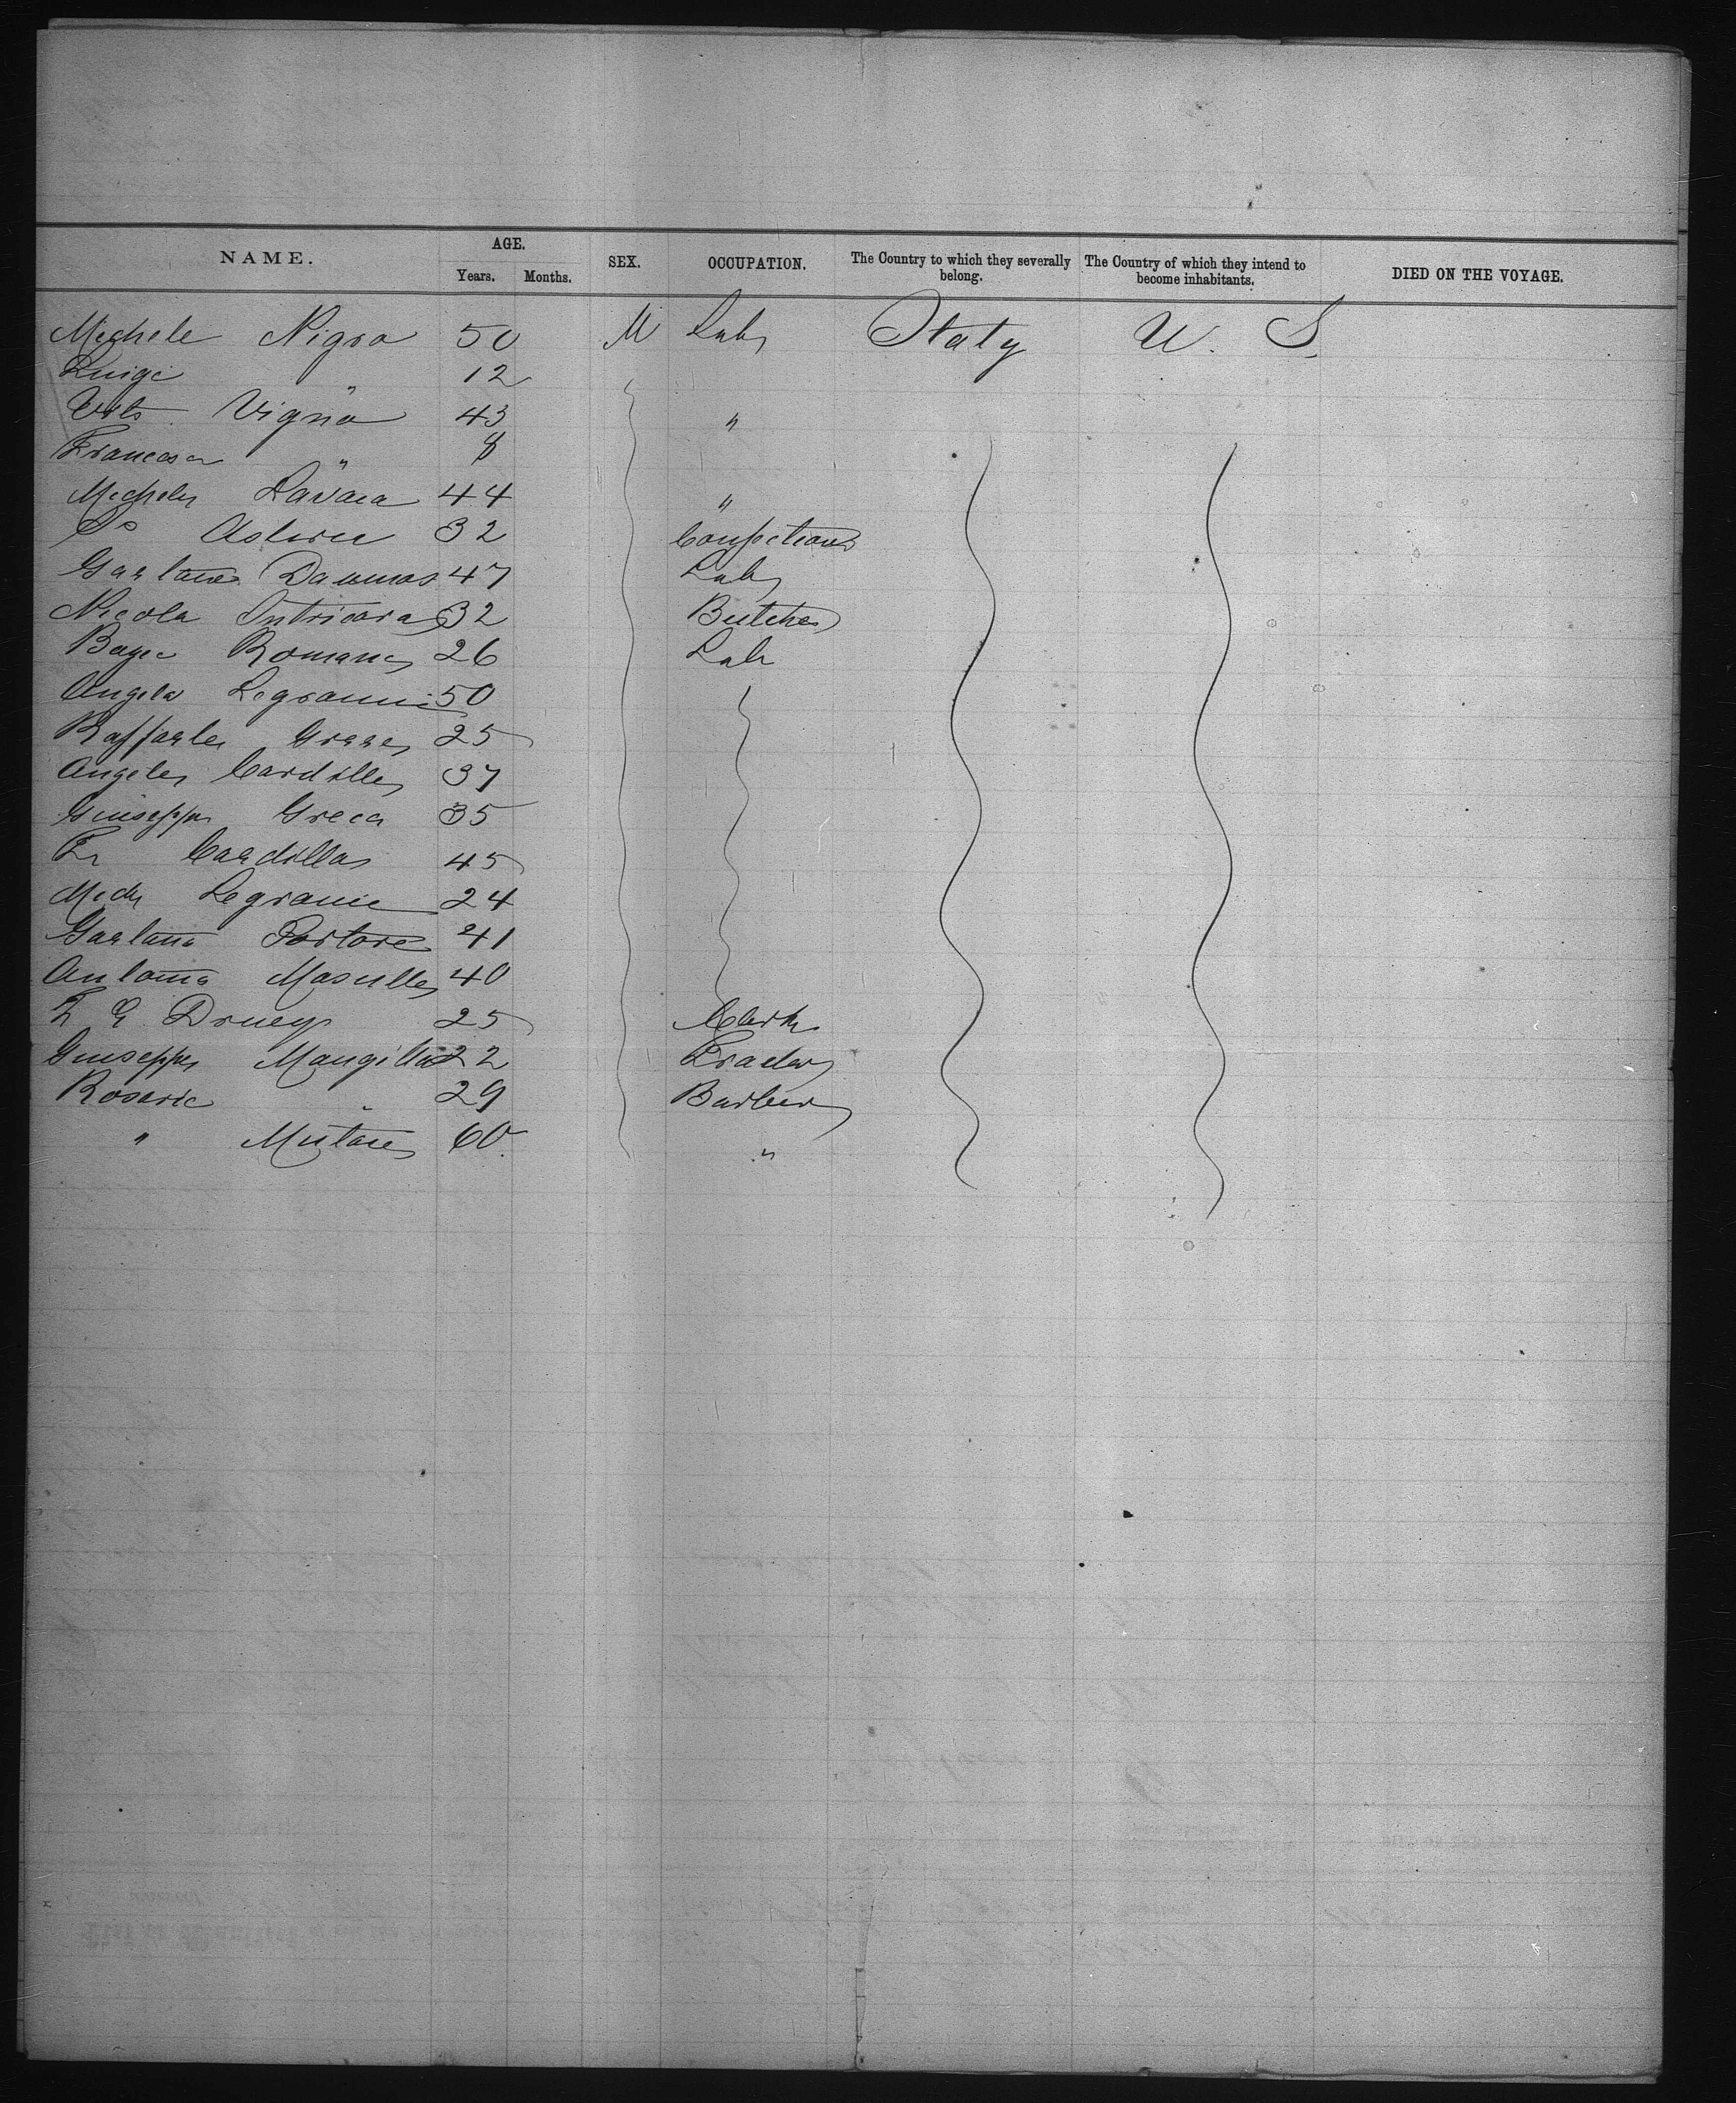 NAME. AGE. Years. Months. SEX. OCCUPATION. The Country to which they severally belong. The Country of which they intend to become inhabitants. DIED ON THE VOYAGE.
Michele Nigro 50 M Lab Italy U. S.
Luigi " 12
Vito Vigna 43 "
Francesca " 8
Michele Lavaia 44 "
32
Gaetano Daumas 47 Lab
Nicola 32 Butcher
Romano 26 Lab
Angelo 50
Raffaele 25
Angelo Cardillo 37
Giuseppe Greca 35
Cardillo 45
Mich Legranie 24
Gaetano Portore 41
Antonio Masullo 40
25 Clerk
Giuseppe Mangilla 22 Trader
Rosario " 29 Barber
" 60 "